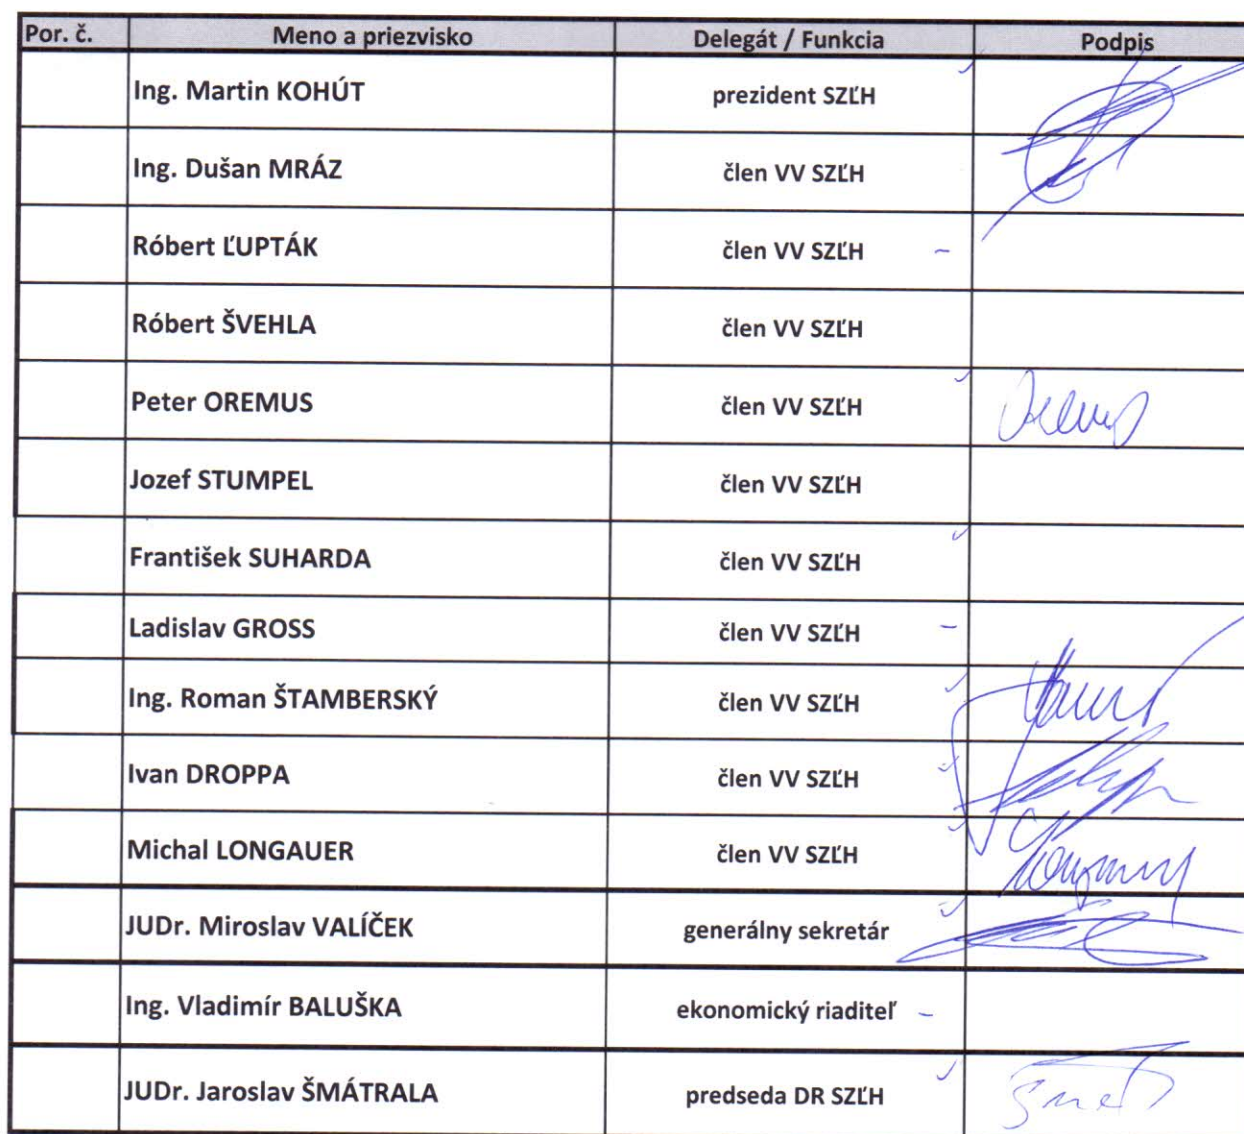 Por. č. Meno a priezvisko Delegát / Funkcia Podpis
Ing. Martin KOHÚT prezident SZĽH
Ing. Dušan MRÁZ člen VV SZĽH
Róbert ĽUPTÁK člen VV SZĽH
Róbert ŠVEHLA člen VV SZĽH
Peter OREMUS člen VV SZĽH
Jozef STUMPEL člen VV SZĽH
František SUHARDA člen VV SZĽH
Ladislav GROSS člen VV SZĽH
Ing. Roman ŠTAMBERSKÝ člen VV SZĽH
Ivan DROPPA člen VV SZĽH
Michal LONGAUER člen VV SZĽH
JUDr. Miroslav VALÍČEK generálny sekretár
Ing. Vladimír BALUŠKA ekonomický riaditeľ
JUDr. Jaroslav ŠMÁTRALA predseda DR SZĽH